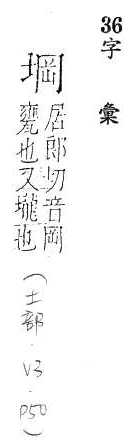 36
字彙
堈
居郎切音岡
甕也又壠也
(土部.V3.P50)